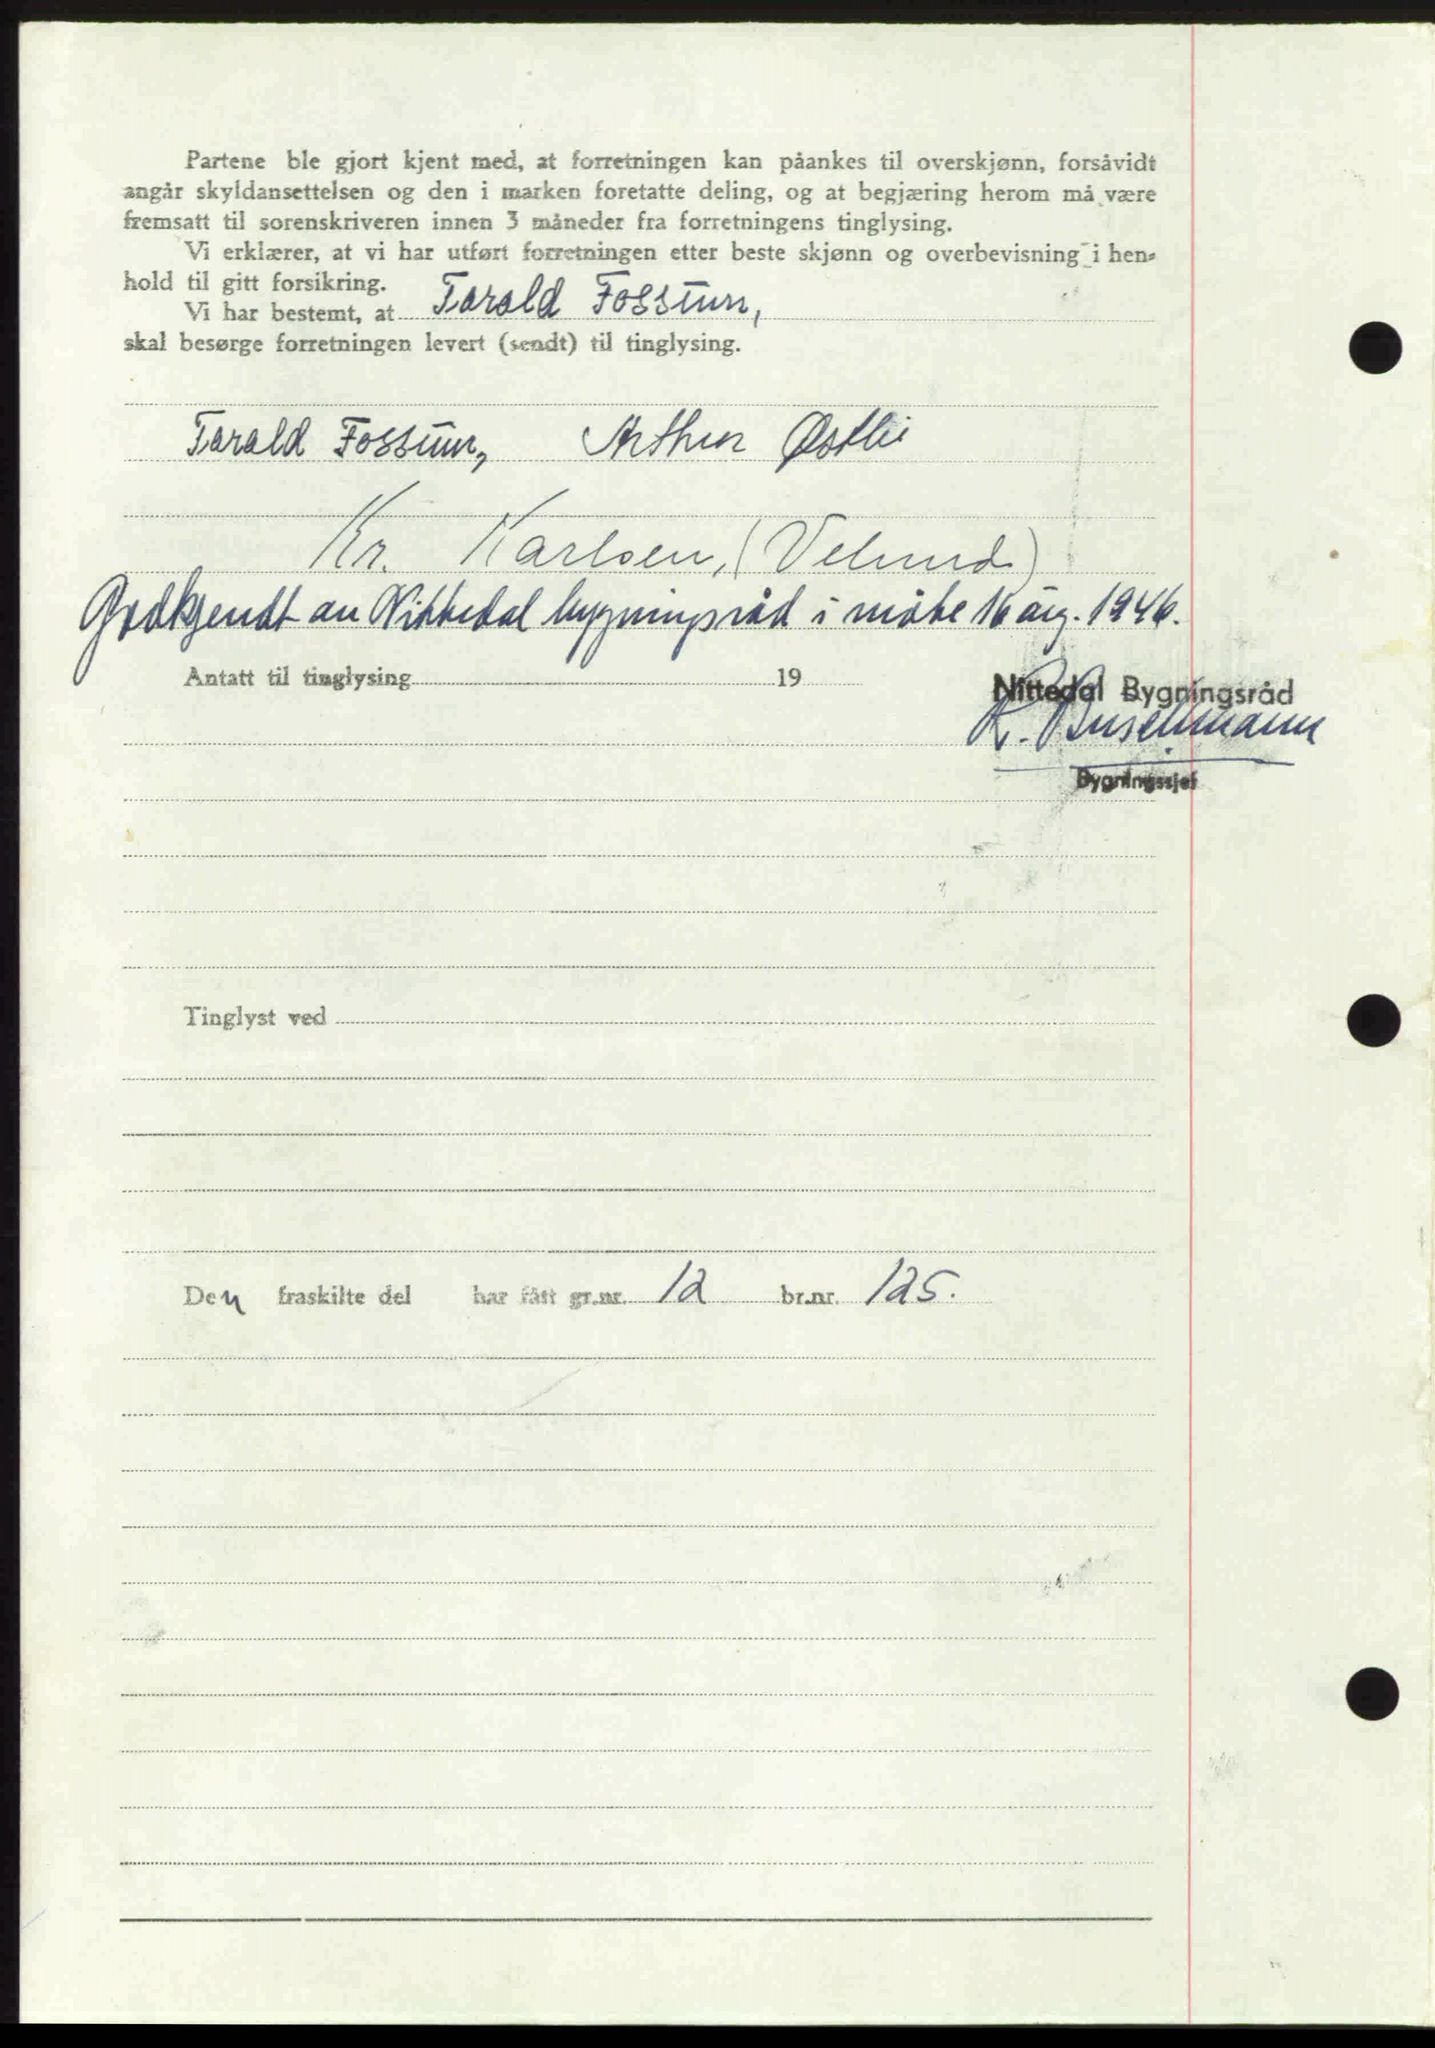 Partene ble gjort kjent med, at forretningen kan påankes til overskjønn, forsåvidt
angår skyldansettelsen og den i marken foretatte deling, og at begjæring herom må være
fremsatt til sorenskriveren innen 3 måneder fra forretningens tinglysing.
Vi erklærer, at vi har utført forretningen etter beste skjønn og overbevisning i hen-
hold til gitt forsikring.
Vi har bestemt, at Tarald Fossum,
skal besørge forretningen levert (sendt) til tinglysing.
Tarald Fossum, Arthur Østlie
Kr. Karlsen, (Velund)
Godkjendt av Nittedal bygningsråd i møte 16 aug. 1946.
Antatt til tinglysing 19
Nittedal Bygningsråd
K. Buschmann
Bygningssjef
Tinglyst ved
Den fraskilte del har fått gr.nr. 12 br.nr. 125.